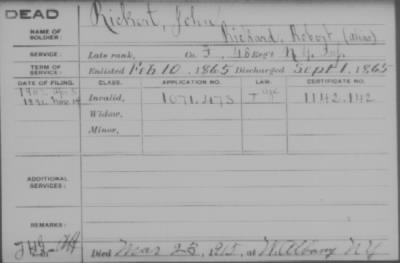 DEAD
NAME OF SOLDIER: Rickert, John
Richard, Robert (Alias)
SERVICE: Late rank, Co. F, 46 Reg't N.Y. Inf.
TERM OF SERVICE: Enlisted Feb 10, 1865 Discharged Sept 1, 1865
DATE OF FILING. CLASS. APPLICATION NO. LAW. CERTIFICATE NO.
Invalid, 1071.473 1142.142
Widow,
Minor,
ADDITIONAL SERVICES:
REMARKS:
Died Mar 25, 1915, at W. Albany N.Y.